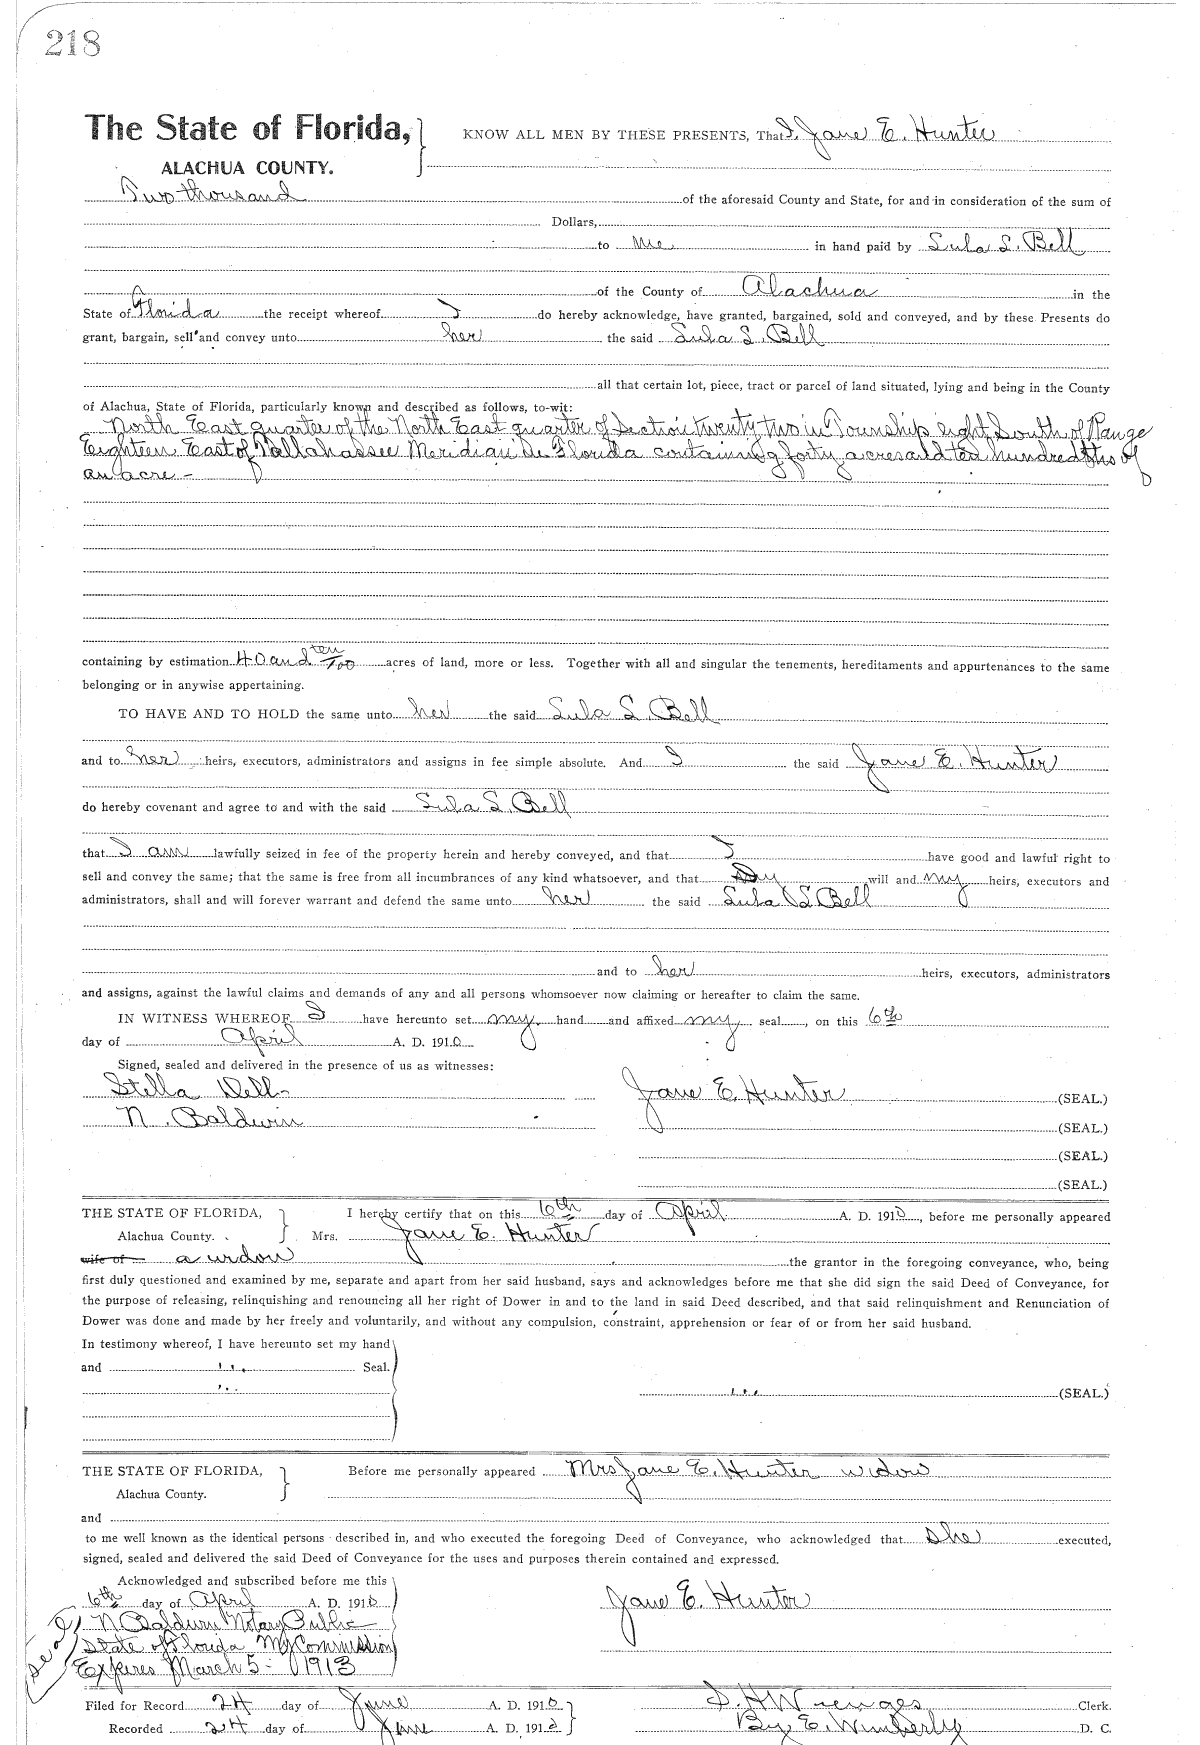 218
The State of Florida, } KNOW ALL MEN BY THESE PRESENTS, That I, Jane E. Hunter
ALACHUA COUNTY.
Two thousand of the aforesaid County and State, for and in consideration of the sum of
Dollars,
to me in hand paid by Lula L. Bell
of the County of Alachua in the
State of Florida the receipt whereof I do hereby acknowledge, have granted, bargained, sold and conveyed, and by these Presents do
grant, bargain, sell and convey unto her the said Lula L. Bell
all that certain lot, piece, tract or parcel of land situated, lying and being in the County
of Alachua, State of Florida, particularly known and described as follows, to-wit:
North East quarter of the North East quarter of Section twenty two in Township eight South of Range
Eighteen East of Tallahassee Meridian in Florida containing forty acres and ten hundredths of
an acre -
containing by estimation 40 and ten/100 acres of land, more or less. Together with all and singular the tenements, hereditaments and appurtenances to the same
belonging or in anywise appertaining.
TO HAVE AND TO HOLD the same unto her the said Lula L Bell
and to her heirs, executors, administrators and assigns in fee simple absolute. And I the said Jane E. Hunter
do hereby covenant and agree to and with the said Lula L. Bell
that I am lawfully seized in fee of the property herein and hereby conveyed, and that I have good and lawful right to
sell and convey the same; that the same is free from all incumbrances of any kind whatsoever, and that will and my heirs, executors and
administrators, shall and will forever warrant and defend the same unto her the said Lula L Bell
and to her heirs, executors, administrators
and assigns, against the lawful claims and demands of any and all persons whomsoever now claiming or hereafter to claim the same.
IN WITNESS WHEREOF I have hereunto set my hand and affixed my seal, on this 6th
day of April A. D. 1910
Signed, sealed and delivered in the presence of us as witnesses:
Stella Dell Jane E. Hunter (SEAL.)
N. Baldwin (SEAL.)
(SEAL.)
(SEAL.)
THE STATE OF FLORIDA, } I hereby certify that on this 6th day of April A. D. 1910, before me personally appeared
Alachua County. Mrs. Jane E. Hunter
wife of a widow the grantor in the foregoing conveyance, who, being
first duly questioned and examined by me, separate and apart from her said husband, says and acknowledges before me that she did sign the said Deed of Conveyance, for
the purpose of releasing, relinquishing and renouncing all her right of Dower in and to the land in said Deed described, and that said relinquishment and Renunciation of
Dower was done and made by her freely and voluntarily, and without any compulsion, constraint, apprehension or fear of or from her said husband.
In testimony whereof, I have hereunto set my hand
and Seal.
(SEAL.)
THE STATE OF FLORIDA, } Before me personally appeared Mrs Jane E. Hunter widow
Alachua County.
and
to me well known as the identical persons described in, and who executed the foregoing Deed of Conveyance, who acknowledged that she executed,
signed, sealed and delivered the said Deed of Conveyance for the uses and purposes therein contained and expressed.
Acknowledged and subscribed before me this
6th day of April A. D. 1910 Jane E. Hunter
Seal N Baldwin Notary Public
State of Florida My Commission
Expires March 5 - 1913
Filed for Record 24 day of June A. D. 1910 S. H. Wienges Clerk.
Recorded 24 day of June A. D. 1910 By E. Wimberly D. C.